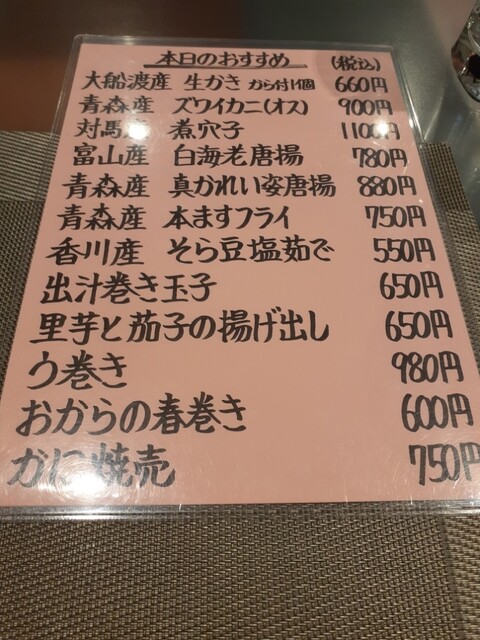 本日のおすすめ (税込)
大船渡産 生かき から付1個 660円
青森産 ズワイカニ(オス) 900円
対馬産 煮穴子 1100円
富山産 白海老唐揚 780円
青森産 真かれい姿唐揚 880円
青森産 本ますフライ 750円
香川産 そら豆塩茹で 550円
出汁巻き玉子 650円
里芋と茄子の揚げ出し 650円
う巻き 980円
おからの春巻き 600円
かに焼売 750円